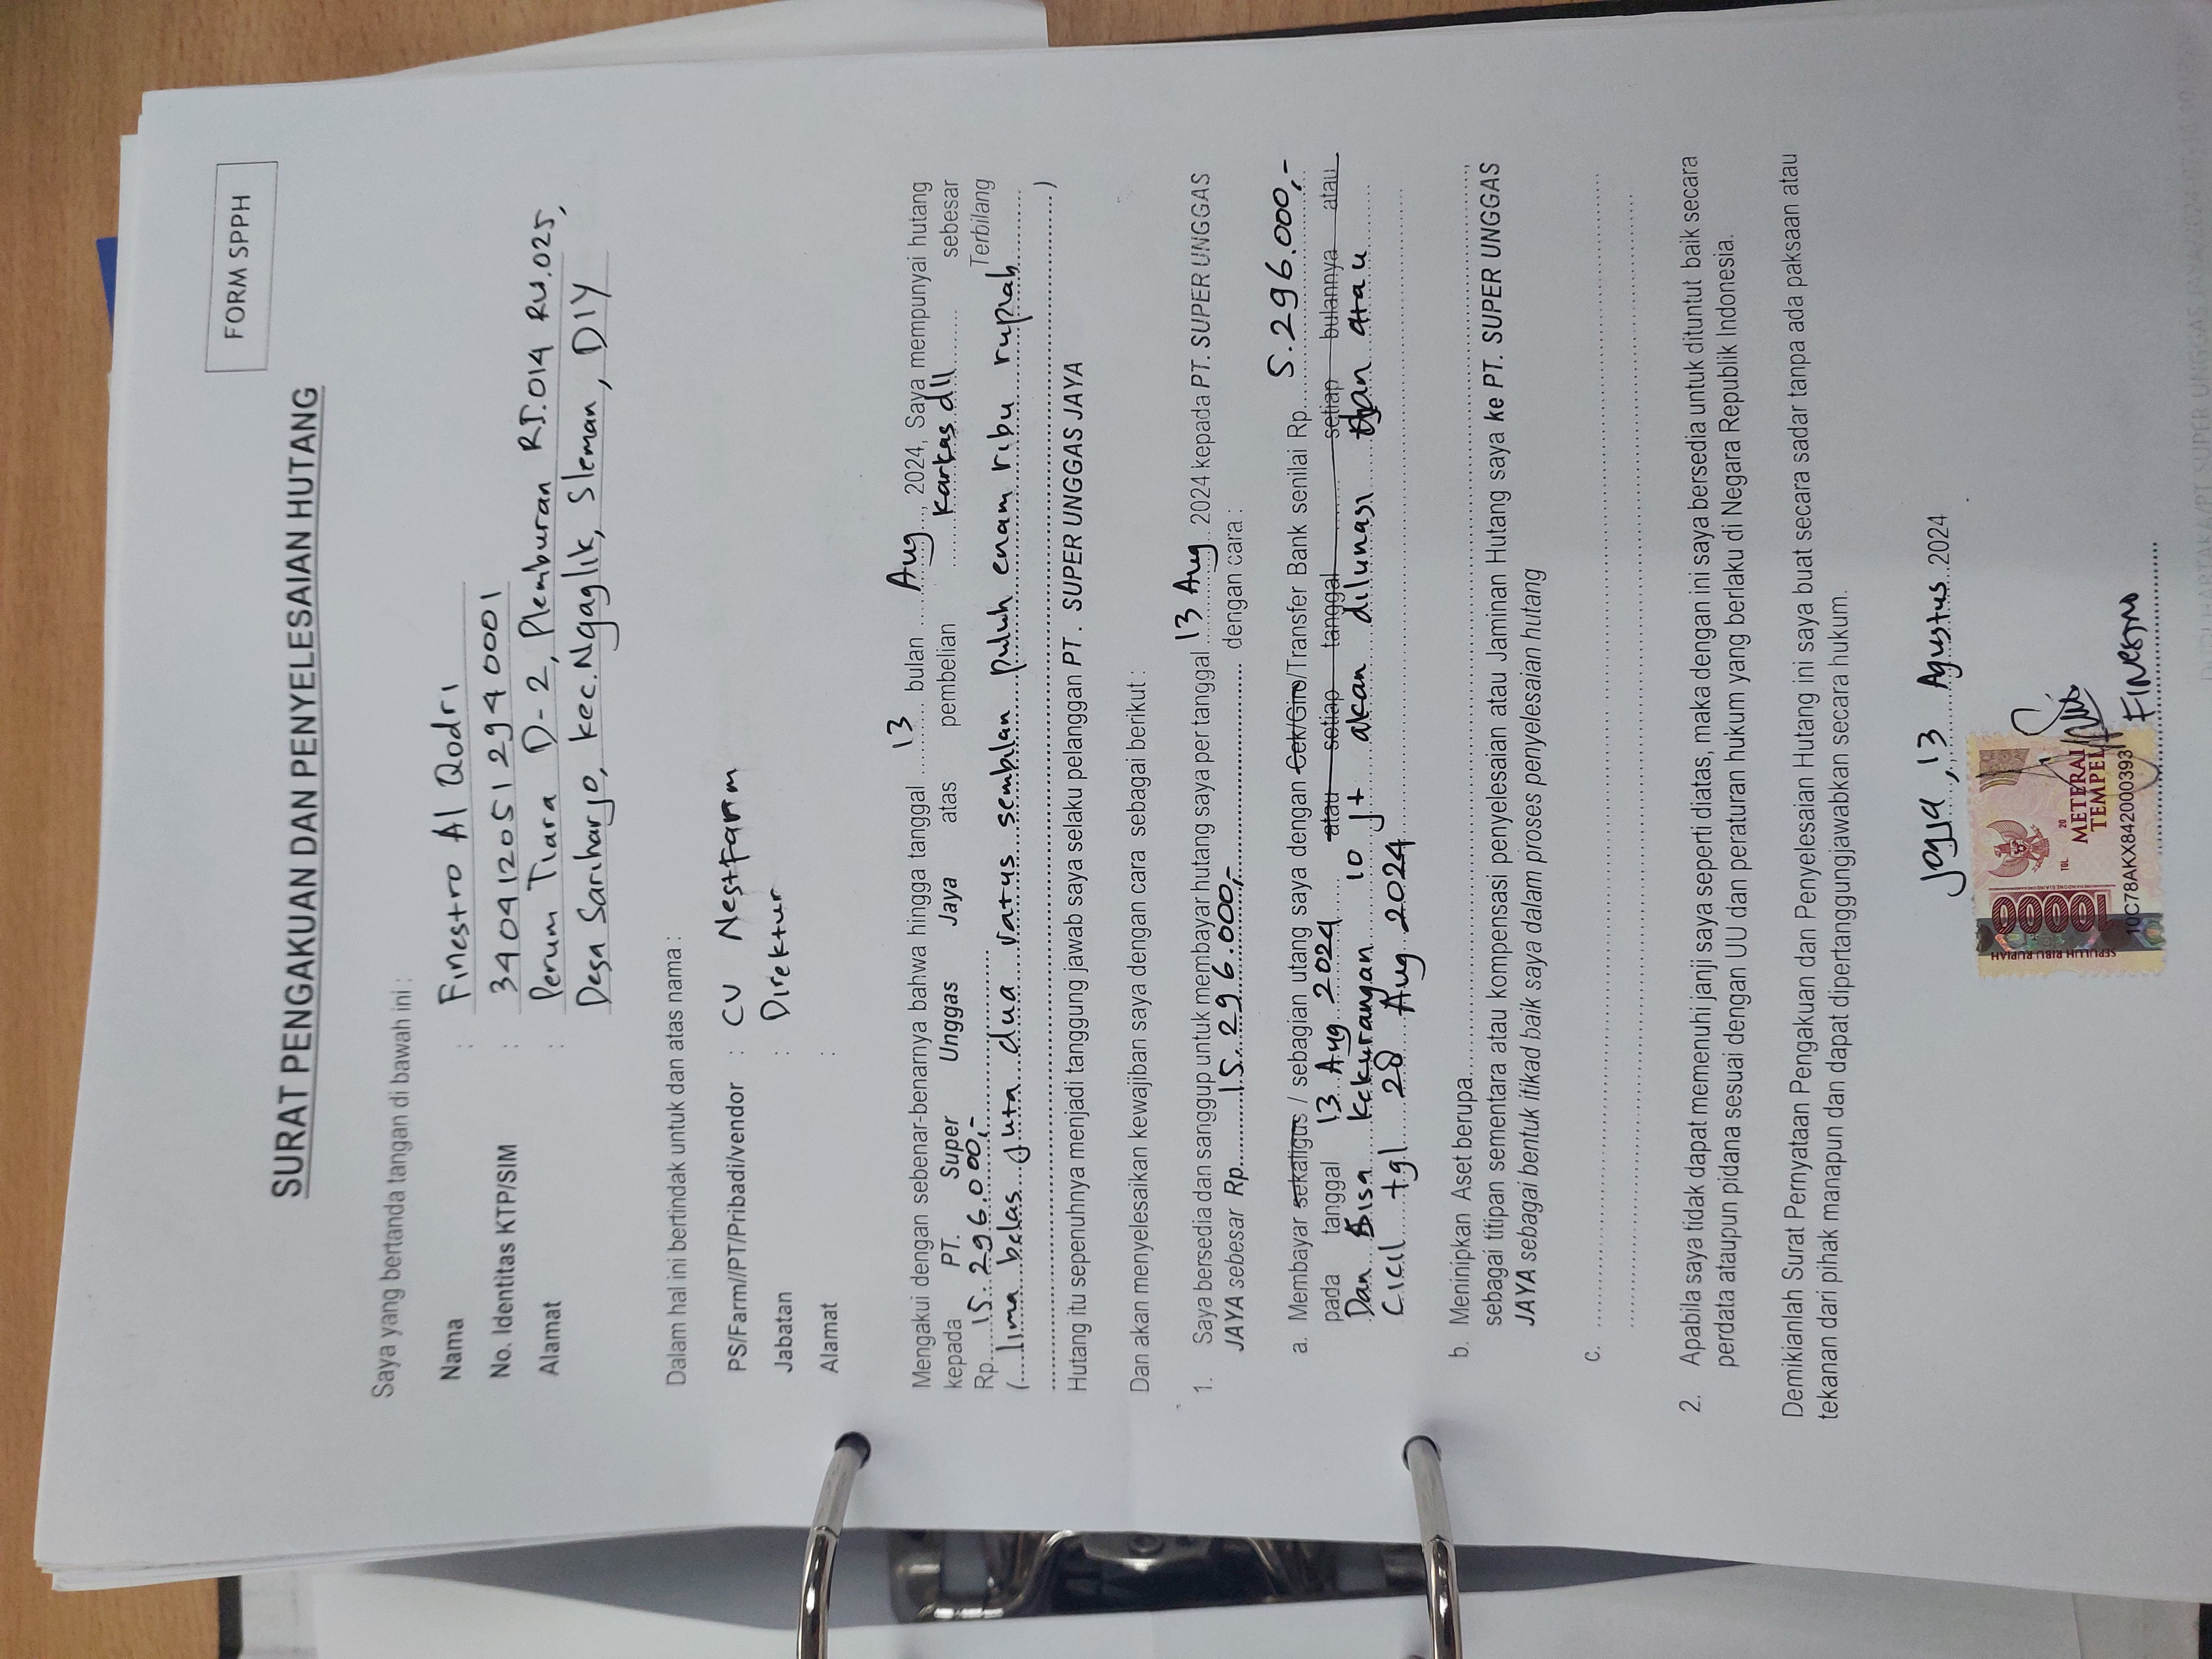 FORM SPPH
SURAT PENGAKUAN DAN PENYELESAIAN HUTANG
Saya yang bertanda tangan di bawah ini :
Nama : Finestro Al Qodri
No. Identitas KTP/SIM : 3404120512940001
Alamat : Perum Tiara D-2, Plemburan RT.014 RW.025,
Desa Sariharjo, Kec. Ngaglik, Sleman, DIY
Dalam hal ini bertindak untuk dan atas nama :
PS/Farm//PT/Pribadi/vendor : CV NestFarm
Jabatan : Direktur
Alamat :
Mengakui dengan sebenar-benarnya bahwa hingga tanggal 13 bulan Aug, 2024, Saya mempunyai hutang
kepada PT. Super Unggas Jaya atas pembelian Karkas dll sebesar
Rp 15.296.000,- Terbilang
( lima belas juta dua ratus sembilan puluh enam ribu rupiah
)
Hutang itu sepenuhnya menjadi tanggung jawab saya selaku pelanggan PT . SUPER UNGGAS JAYA
Dan akan menyelesaikan kewajiban saya dengan cara sebagai berikut :
1. Saya bersedia dan sanggup untuk membayar hutang saya per tanggal 13 Aug 2024 kepada PT. SUPER UNGGAS
JAYA sebesar Rp 15.296.000,- dengan cara :
a. Membayar sekaligus / sebagian utang saya dengan Cek/Giro/Transfer Bank senilai Rp 5.296.000,-
pada tanggal 13 Aug 2024 atau setiap tanggal setiap bulannya atau
Dan Sisa Kekurangan 10 jt akan dilunasi dan atau
Cicil tgl 28 Aug 2024
b. Meninipkan Aset berupa,
sebagai titipan sementara atau kompensasi penyelesaian atau Jaminan Hutang saya ke PT. SUPER UNGGAS
JAYA sebagai bentuk itikad baik saya dalam proses penyelesaian hutang
c.
2. Apabila saya tidak dapat memenuhi janji saya seperti diatas, maka dengan ini saya bersedia untuk dituntut baik secara
perdata ataupun pidana sesuai dengan UU dan peraturan hukum yang berlaku di Negara Republik Indonesia.
Demikianlah Surat Pernyataan Pengakuan dan Penyelesaian Hutang ini saya buat secara sadar tanpa ada paksaan atau
tekanan dari pihak manapun dan dapat dipertanggungjawabkan secara hukum.
Jogja, 13 Agustus 2024
SEPULUH RIBU RUPIAH
10000
TGL. 20
METERAI
TEMPEL
10C78AKX842000393
FINESTRO